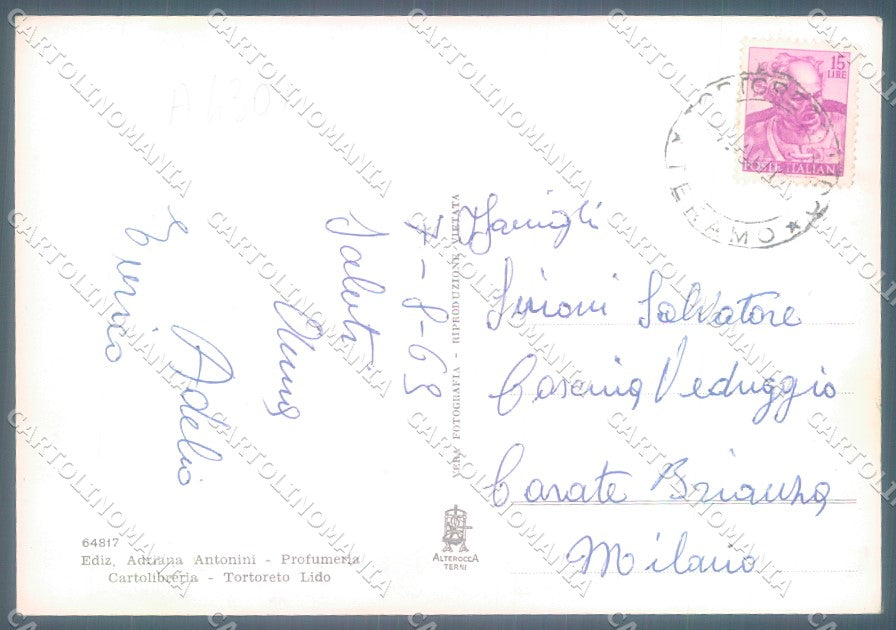 A 430
15
LIRE
POSTE ITALIANE
TERAMO
7-8-63
Saluti
Anna
Adelio
Enrico
VERA FOTOGRAFIA - RIPRODUZIONE VIETATA
Famigli
Sironi Salvatore
Cascina Veduggio
Carate Brianza
Milano
64817
Ediz. Adriana Antonini - Profumeria
Cartolibreria - Tortoreto Lido
ALTEROCCA
TERNI
CARTOLINOMANIA